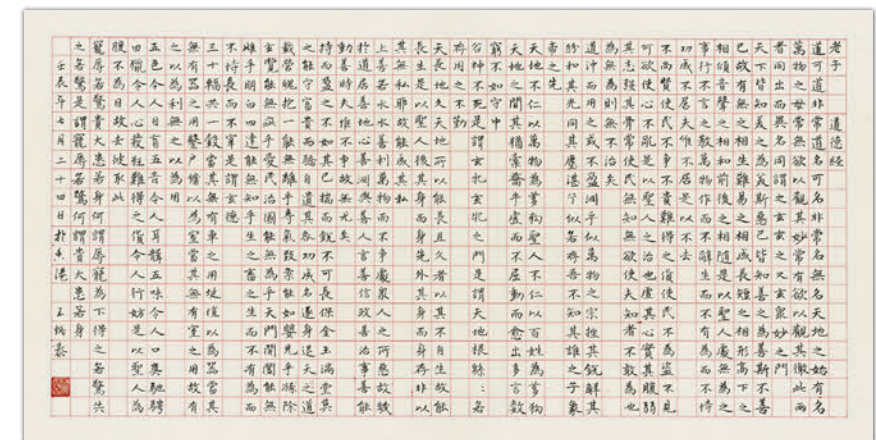 老子 道德經
道可道非常道名可名非常名無名天地之始有名
萬物之母常無欲以觀其妙常有欲以觀其徼此兩
者同出而異名同謂之玄玄之又玄眾妙之門
天下皆知美之為美斯惡已皆知善之為善斯不善
已故有無之相生難易之相成長短之相形高下之
相傾音聲之相和前後之相隨是以聖人處無為之
事行不言之教萬物作而不辭生而不有為而不恃
功成不居夫惟不居是以不去
不尚賢使民不爭不貴難得之貨使民不為盜不見
可欲使心不亂是以聖人之治也虛其心實其腹弱
其志強其骨常使民無知無欲使夫知者不敢為也
為無為則無不治矣
道沖而用之或不盈淵乎似萬物之宗挫其銳解其
紛和其光同其塵湛兮似若存吾不知其誰之子象
帝之先
天地不仁以萬物為芻狗聖人不仁以百姓為芻狗
天地之間其猶橐籥乎虛而不屈動而愈出多言數
窮不如守中
谷神不死是謂玄牝玄牝之門是謂天地根綿綿若
存用之不勤
天長地久天地所以能長且久者以其不自生故能
長生是以聖人後其身而身先外其身而身存非以
其無私耶故能成其私
上善若水水善利萬物而不爭處眾人之所惡故幾
於道居善地心善淵與善人言善信政善治事善能
動善時夫惟不爭故無尤矣
持而盈之不如其已揣而銳之不可長保金玉滿堂莫
之能守富貴而驕自遺其咎功成名遂身退天之道
載營魄抱一能無離乎專氣致柔能如嬰兒乎滌除
玄覽能無疵乎愛民治國能無為乎天門開闔能無
雌乎明白四達能無知乎生之畜之生而不有為而
不恃長而不宰是謂玄德
三十輻共一轂當其無有車之用埏埴以為器當其
無有器之用鑿戶牖以為室當其無有室之用故有
之以為利無之以為用
五色令人目盲五音令人耳聾五味令人口爽馳騁
田獵令人心發狂難得之貨令人行妨是以聖人為
腹不為目故去彼取此
寵辱若驚貴大患若身何謂寵辱寵為下得之若驚失
之若驚是謂寵辱若驚何謂貴大患若
壬辰年七月二十四日於香港 王炳泰